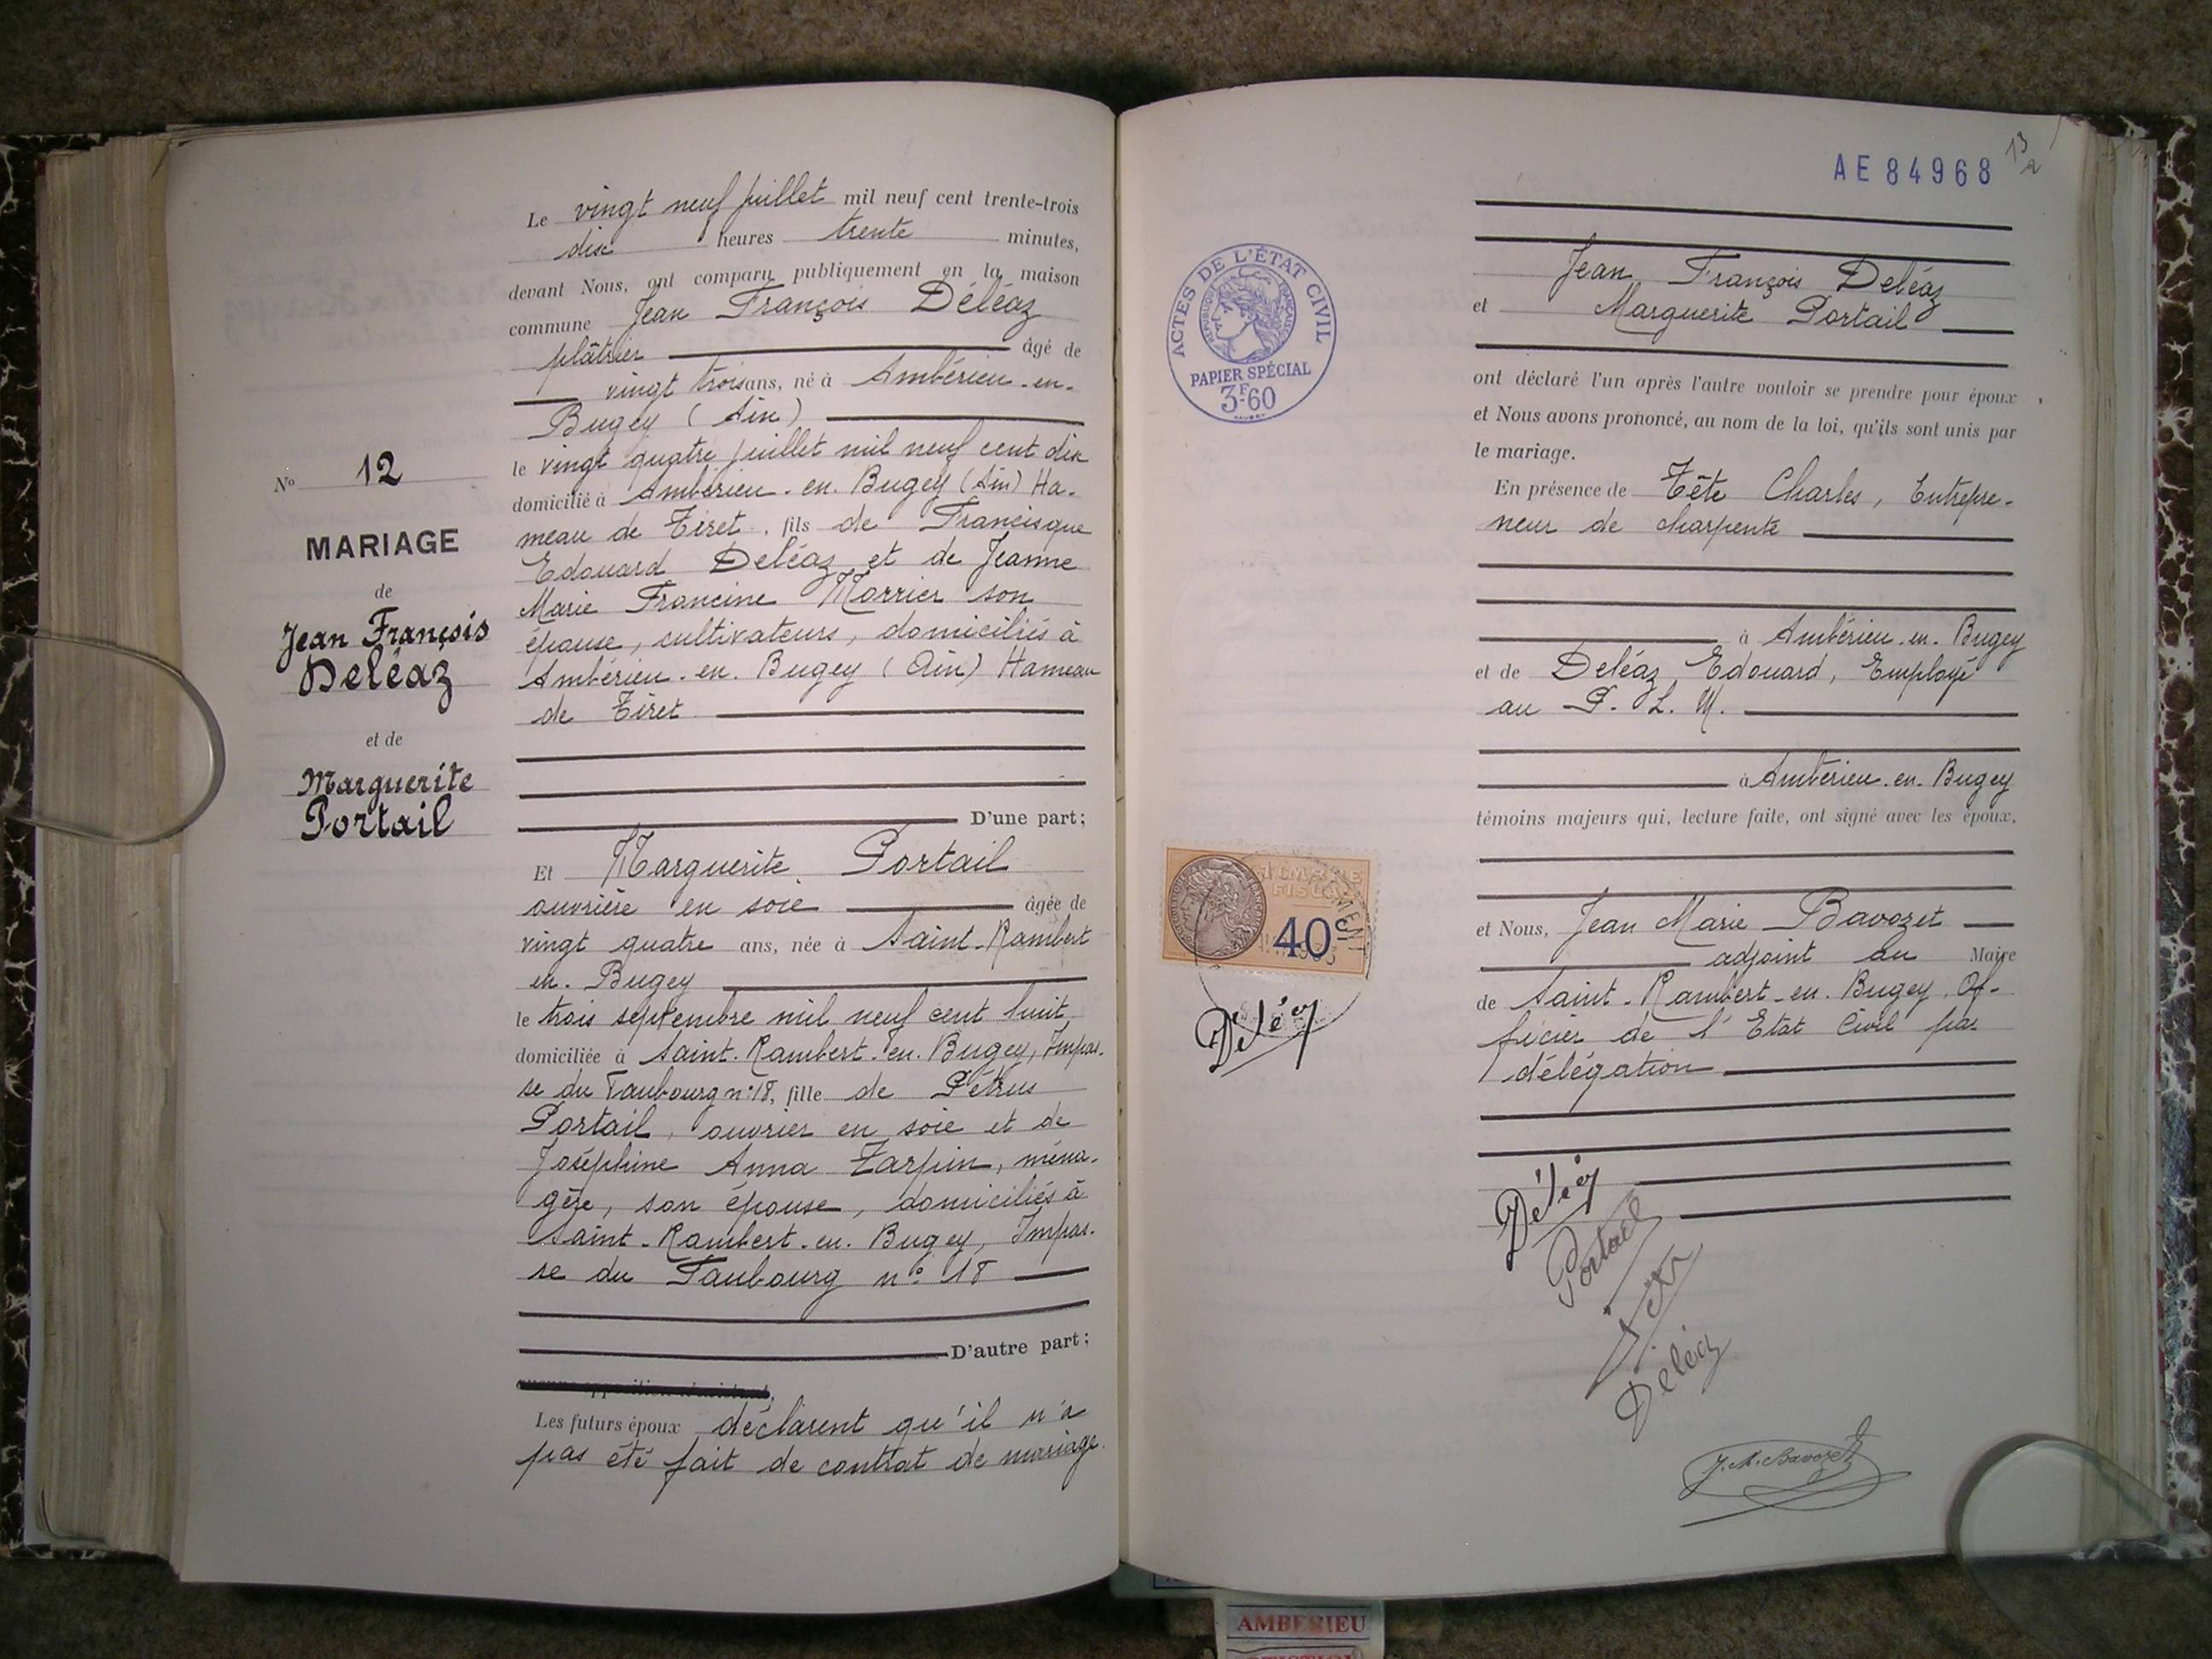 Le vingt neuf juillet mil neuf cent trente-trois
dix heures trente minutes,
devant Nous, ont comparu publiquement en la maison
commune Jean François Déléaz
plâtrier âgé de
vingt trois ans, né à Ambérieu-en-
Bugey (Ain)
le vingt quatre juillet mil neuf cent dix
domicilié à Ambérieu-en-Bugey (Ain) Ha-
meau de Tiret, fils de Francisque
Edouard Deléaz et de Jeanne
Marie Francine Morrier son
épouse, cultivateurs, domiciliés à
Ambérieu-en-Bugey (Ain) Hameau
de Tiret
D'une part;
No 12
MARIAGE
de
Jean François
Deléaz
et de
Marguerite
Portail
Et Marguerite Portail
ouvrière en soie âgée de
vingt quatre ans, née à Saint-Rambert
en-Bugey
le trois septembre mil neuf cent huit
domiciliée à Saint-Rambert-en-Bugey, Impas-
se du Faubourg n° 18, fille de Pétrus
Portail, ouvrier en soie et de
Joséphine Anna Zarpin, ména-
gère, son épouse, domiciliés à
Saint-Rambert-en-Bugey, Impas-
se du Faubourg n° 18
D'autre part;
Les futurs époux déclarent qu'il n'a
pas été fait de contrat de mariage.
AE 84968
13
2
ACTES DE L'ÉTAT CIVIL
RÉPUBLIQUE FRANÇAISE
PAPIER SPÉCIAL
3F60
Jean François Deléaz
et Marguerite Portail
ont déclaré l'un après l'autre vouloir se prendre pour époux
et Nous avons prononcé, au nom de la loi, qu'ils sont unis par
le mariage.
En présence de Tête Charles, Entrepre-
neur de charpente
à Ambérieu-en-Bugey
et de Deléaz Edouard, Employé
au P. L. M.
à Ambérieu-en-Bugey
témoins majeurs qui, lecture faite, ont signé avec les époux,
TIMBRE
FISCAL
40c
Déléaz
et Nous, Jean Marie Bavozet
adjoint au Maire
de Saint-Rambert-en-Bugey, Of-
ficier de l'Etat Civil par
délégation
Déléaz
Portail
Deléaz
J. M. Bavozet
AMBERIEU